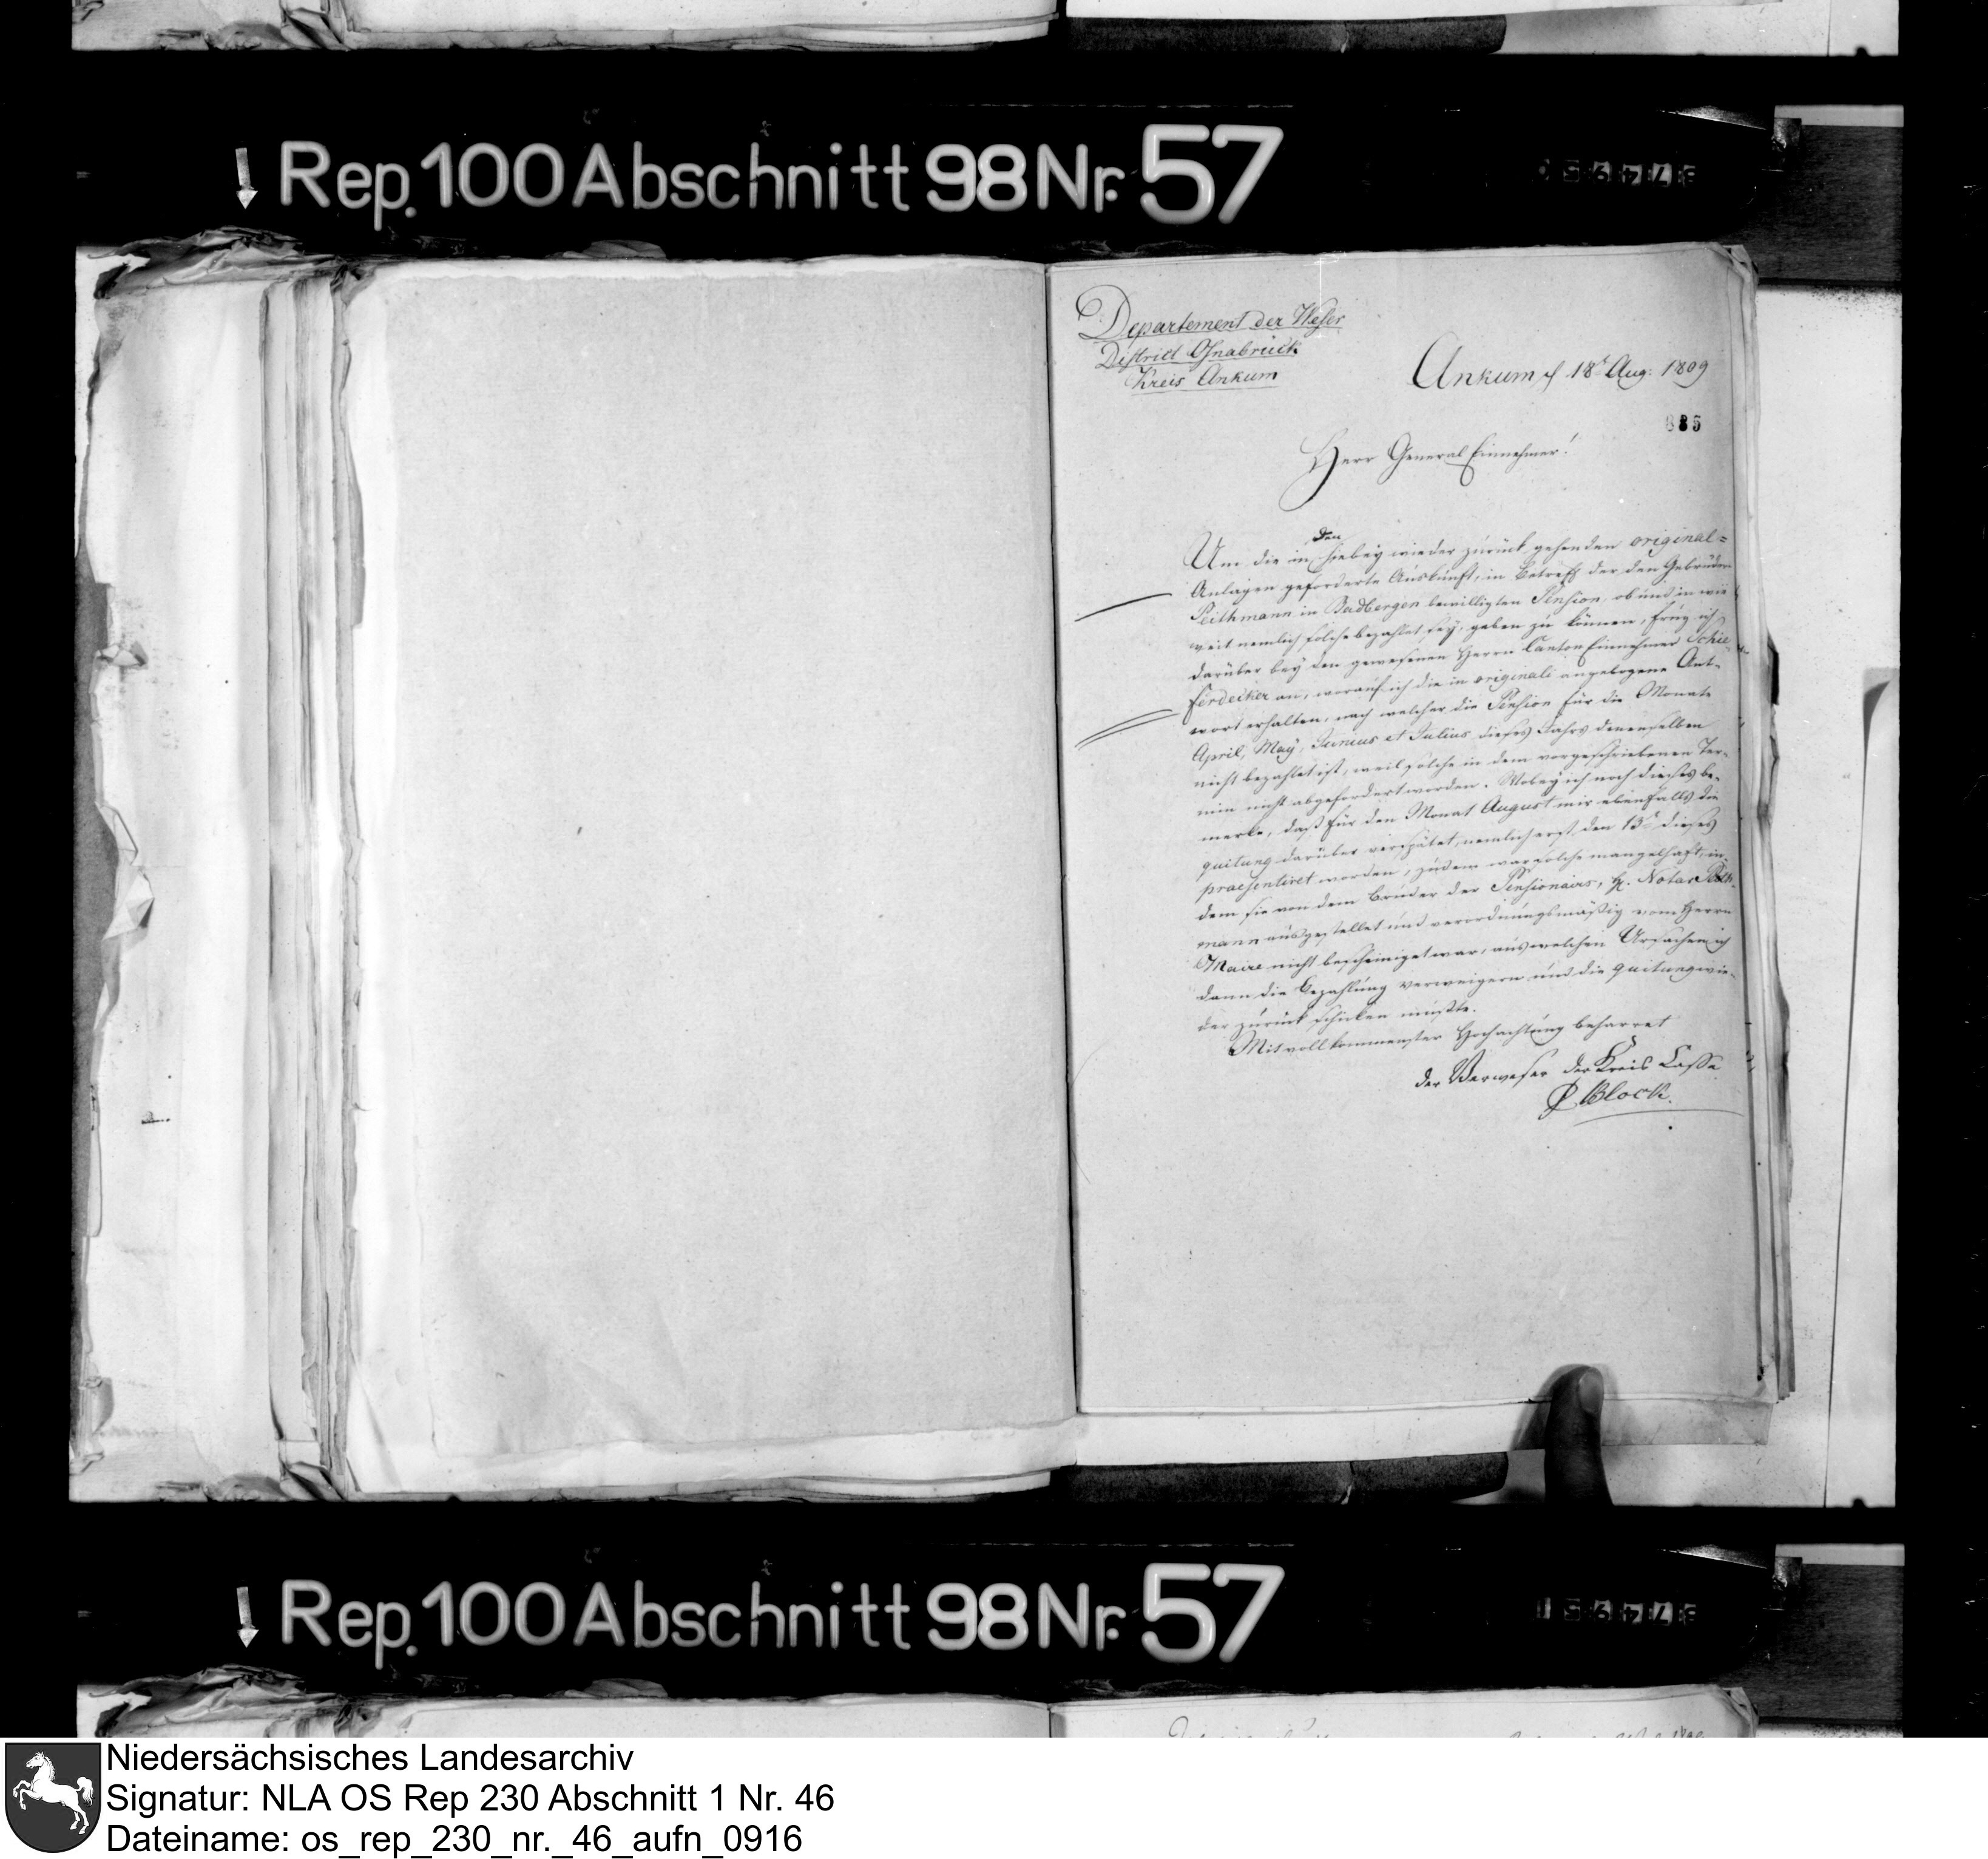 Rep. 100 Abschnitt 98 Nr. 57
Departement der Weser
District Osnabrück
Kreis Ankum
Ankum d 18t Aug. 1809
885
Herr General Einnehmer!
den
Um die in hiebey wieder zurück gehenden original-
Anlagen geforderte Auskunft, in Betreff der den Gebrüdern
Peithmann in Badbergen bewilligten Pension, ob und in wie
weit nemlich solche bezahlet sey, geben zu können, frug ich
darüber bey den gewesenen Herrn Canton Einnehmer Schie-
ferdecker an, worauf ich die in originali angebogene Ant-
wort erhalten, nach welcher die Pension für die Monate
April, May, Junius et Julius dieses Jahrs denenselben
nicht bezahlet ist, weil solche in dem vorgeschriebenen Ter-
min nicht abgefordert worden. Wobey ich noch dieses be-
merke, daß für den Monat August mir ebenfalls die
quitung darüber verspätet, nemlich erst den 13t dieses
praesentiret worden, zudem war solche mangelhaft, in-
dem sie von dem Bruder der Pensionairs, H. Notar Peith-
mann ausgestellet und verordnungsmäßig vom Herrn
Maire nicht bescheiniget war, aus welchen Ursachen ich
dann die Bezahlung verweigern und die quitung wie-
der zurück schicken mußte.
Mit vollkommenster Hochachtung beharret
der Verweser der Kreis Casse
Block.
Rep. 100 Abschnitt 98 Nr. 57
Niedersächsisches Landesarchiv
Signatur: NLA OS Rep 230 Abschnitt 1 Nr. 46
Dateiname: os_rep_230_nr._46_aufn_0916